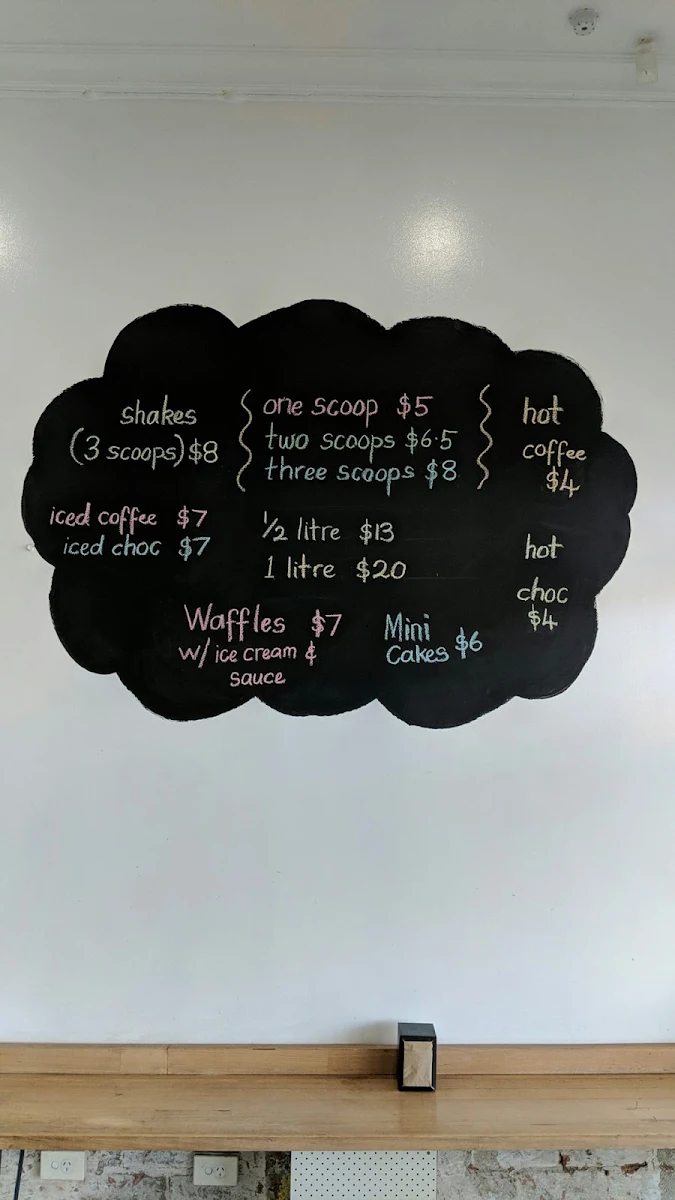 shakes
(3 scoops) $8
iced coffee $7
iced choc $7
one scoop $5
two scoops $6.5
three scoops $8
1/2 litre $13
1 litre $20
Waffles $7
w/ ice cream &
sauce
Mini
Cakes $6
hot
coffee
$4
hot
choc
$4